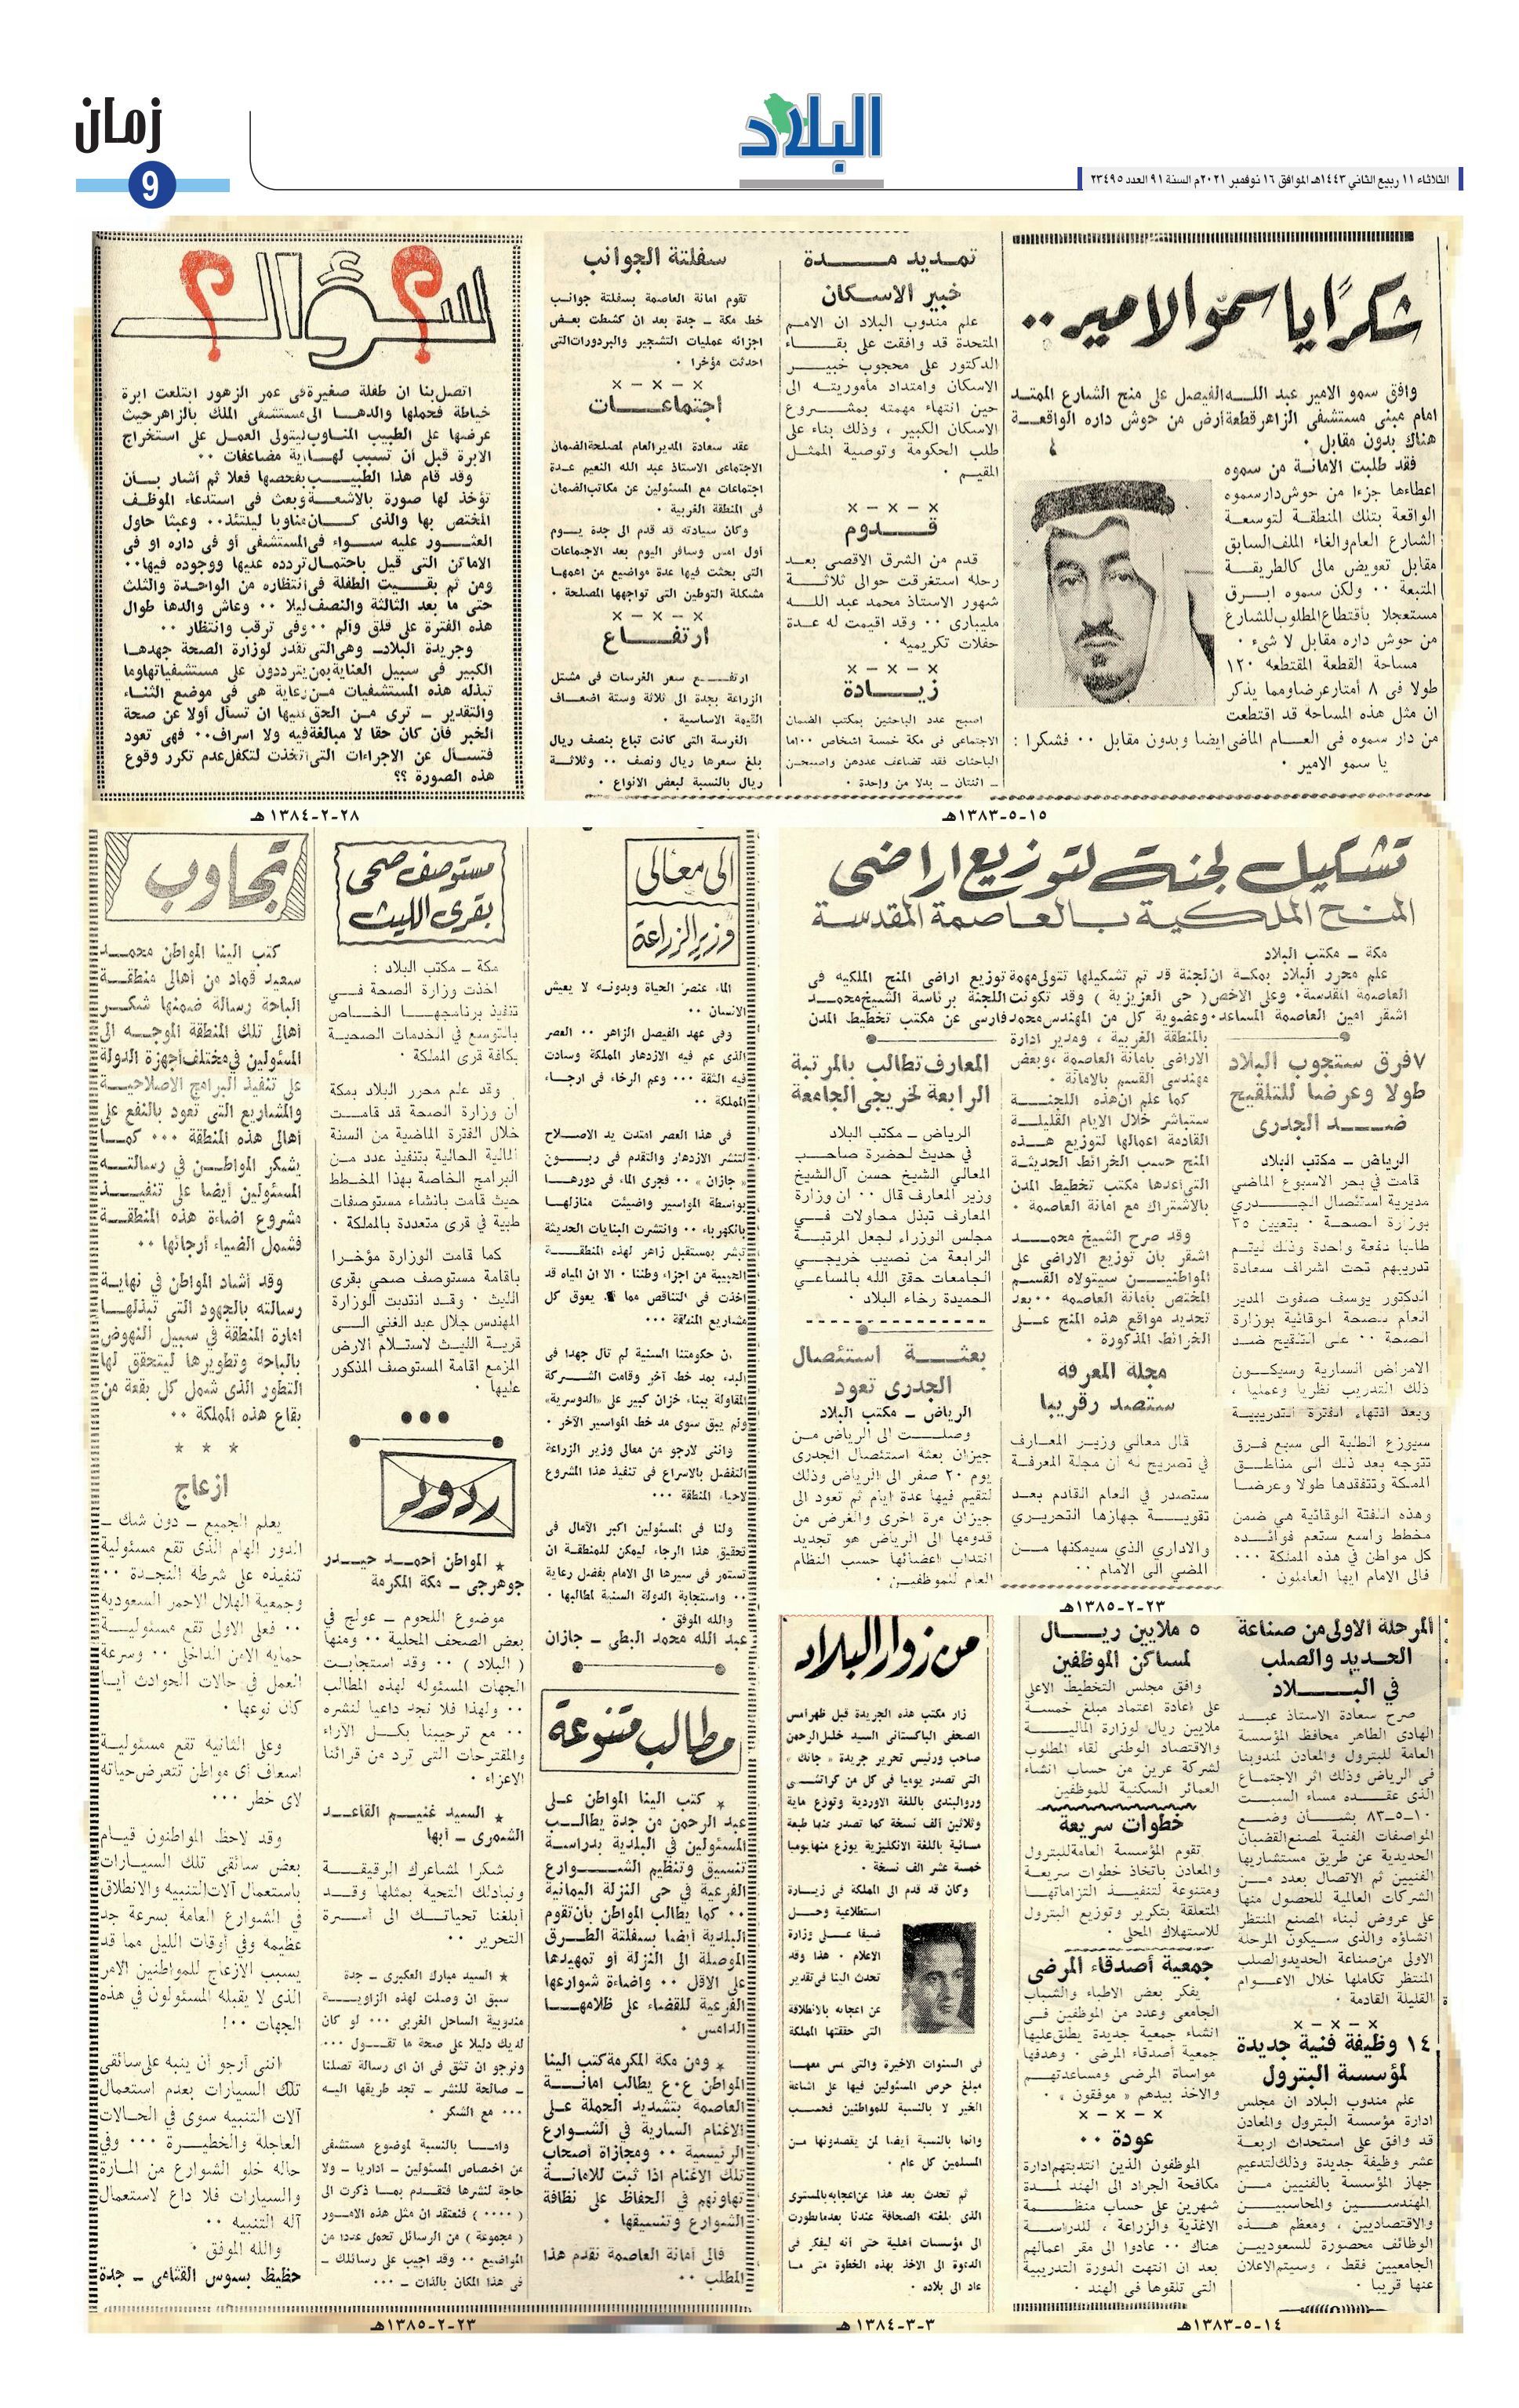 زمان
9
البلاد
الثلاثاء ١١ ربيع الثاني ١٤٤٣هـ الموافق ١٦ نوفمبر ٢٠٢١م السنة ٩١ العدد ٢٣٤٩٥
شكرًا يا سمو الامير ..
وافق سمو الامير عبد الله الفيصل على منح الشارع الممتد
امام مبنى مستشفى الزاهر قطعة أرض من حوش داره الواقعة
هناك بدون مقابل .
فقد طلبت الامانة من سموه
اعطاءها جزءا من حوش دار سموه
الواقعة بتلك المنطقة لتوسعة
الشارع العام والغاء الملف السابق
مقابل تعويض مالى كالطريقة
المتبعة .. ولكن سموه ابرق
مستعجلا بأقتطاع المطلوب للشارع
من حوش داره مقابل لا شىء .
مساحة القطعة المقتطعه ١٢٠
طولا فى ٨ أمتار عرضا ومما يذكر
ان مثل هذه المساحه قد اقتطعت
من دار سموه فى العام الماضى ايضا وبدون مقابل .. فشكرا :
يا سمو الامير .
تمديد مدة
خبير الاسكان
علم مندوب البلاد ان الامم
المتحدة قد وافقت على بقاء
الدكتور على محجوب خبير
الاسكان وامتداد مأموريته الى
حين انتهاء مهمته بمشروع
الاسكان الكبير ، وذلك بناء على
طلب الحكومة وتوصية الممثل
المقيم .
× - × - ×
قدوم
قدم من الشرق الاقصى بعد
رحله استغرقت حوالى ثلاثة
شهور الاستاذ محمد عبد الله
مليبارى .. وقد اقيمت له عدة
حفلات تكريميه .
× - × - ×
زيادة
اصبح عدد الباحثين بمكتب الضمان
الاجتماعى فى مكة خمسة اشخاص .. اما
الباحثات فقد تضاعف عددهن واصبحن
ـ اثنتان ـ بدلا من واحدة .
سفلتة الجوانب
تقوم امانة العاصمة بسفلتة جوانب
خط مكة ـ جدة بعد ان كشطت بعض
اجزائه عمليات التشجير والبردورات التى
احدثت مؤخرا .
× - × - ×
اجتماعات
عقد سعادة المدير العام لمصلحة الضمان
الاجتماعى الاستاذ عبد الله النعيم عدة
اجتماعات مع المسئولين عن مكاتب الضمان
فى المنطقة الغربية .
وكان سيادته قد قدم الى جدة يوم
أول امس وسافر اليوم بعد الاجتماعات
التى بحثت فيها عدة مواضيع من اهمها
مشكلة التوطين التى تواجهها المصلحة .
× - × - ×
ارتفاع
ارتفع سعر الغرسات فى مشتل
الزراعة بجدة الى ثلاثة وستة اضعاف
القيمة الاساسية .
الغرسة التى كانت تباع بنصف ريال
بلغ سعرها ريال ونصف .. وثلاثة
ريال بالنسبة لبعض الانواع .
١٥-٥-١٣٨٣هـ
سؤال ؟ ؟
اتصل بنا ان طفلة صغيرة فى عمر الزهور ابتلعت ابرة
خياطة فحملها والدها الى مستشفى الملك بالزاهر حيث
عرضها على الطبيب المناوب ليتولى العمل على استخراج
الابرة قبل أن تسبب لها اية مضاعفات ..
وقد قام هذا الطبيب بفحصها فعلا ثم أشار بان
تؤخذ لها صورة بالاشعة وبعث فى استدعاء الموظف
المختص بها والذى كان مناوبا ليلتئذ .. وعبثا حاول
العثور عليه سواء فى المستشفى أو فى داره او فى
الاماكن التى قيل باحتمال تردده عليها ووجوده فيها ..
ومن ثم بقيت الطفلة فى انتظاره من الواحدة والثلث
حتى ما بعد الثالثة والنصف ليلا .. وعاش والدها طوال
هذه الفترة على قلق والم .. وفى ترقب وانتظار ..
وجريدة البلاد ـ وهى التى تقدر لوزارة الصحة جهدها
الكبير فى سبيل العناية بمن يترددون على مستشفياتها وما
تبذله هذه المستشفيات من رعاية هى فى موضع الثناء
والتقدير ـ ترى من الحق عليها ان تسأل أولا عن صحة
الخبر فأن كان حقا لا مبالغة فيه ولا اسراف .. فهى تعود
فتسأل عن الاجراءات التى اتخذت لتكفل عدم تكرر وقوع
هذه الصورة ؟؟
٢٨-٢-١٣٨٤هـ
تشكيل لجنة لتوزيع اراضى
المنح الملكية بالعاصمة المقدسة
مكة ـ مكتب البلاد
علم محرر البلاد بمكة ان لجنة قد تم تشكيلها تتولى مهمة توزيع اراضى المنح الملكيه فى
العاصمة المقدسة . وعلى الاخص ( حى العزيزية ) وقد تكونت اللجنة برئاسة الشيخ محمد
اشقر امين العاصمة المساعد . وعضوية كل من المهندس محمد فارسى عن مكتب تخطيط المدن
بالمنطقة الغربية ، ومدير ادارة
الاراضى بامانة العاصمة ، وبعض
مهندسى القسم بالامانة .
كما علم ان هذه اللجنة
ستباشر خلال الايام القليلة
القادمة اعمالها لتوزيع هذه
المنح حسب الخرائط الحديثة
التى اعدها مكتب تخطيط المدن
بالاشتراك مع امانة العاصمة .
وقد صرح الشيخ محمد
اشقر بان توزيع الاراضى على
المواطنين سيتولاه القسم
المختص بامانة العاصمه .. بعد
تحديد مواقع هذه المنح على
الخرائط المذكورة .
٧ فرق ستجوب البلاد
طولا وعرضا للتلقيح
ضد الجدرى
الرياض ـ مكتب البلاد
قامت في بحر الاسبوع الماضي
مديرية استئصال الجدري
بوزارة الصحة . بتعيين ٣٥
طالبا دفعة واحدة وذلك ليتم
تدريبهم تحت اشراف سعادة
الدكتور يوسف صفوت المدير
العام للصحة الوقائية بوزارة
الصحة .. على التلقيح ضد
الامراض السارية وسيكون
ذلك التدريب نظريا وعمليا ،
وبعد انتهاء الفترة التدريبية
سيوزع الطلبة الى سبع فرق
تتوجه بعد ذلك الى مناطق
المملكة وتتفقدها طولا وعرضا
وهذه اللفتة الوقائية هي ضمن
مخطط واسع ستعم فوائده
كل مواطن في هذه المملكة ...
فالى الامام ايها العاملون .
مجلة المعرفة
ستصدر قريبا
قال معالي وزير المعارف
في تصريح له ان مجلة المعرفة
ستصدر في العام القادم بعد
تقوية جهازها التحريري
والاداري الذي سيمكنها من
المضي الى الامام ..
المعارف تطالب بالمرتبة
الرابعة لخريجى الجامعة
الرياض ـ مكتب البلاد
في حديث لحضرة صاحب
المعالي الشيخ حسن آل الشيخ
وزير المعارف قال .. ان وزارة
المعارف تبذل محاولات في
مجلس الوزراء لجعل المرتبة
الرابعة من نصيب خريجي
الجامعات حقق الله بالمساعي
الحميدة رخاء البلاد .
بعثة استئصال
الجدرى تعود
الرياض ـ مكتب البلاد
وصلت الى الرياض من
جيزان بعثة استئصال الجدرى
يوم ٢٠ صفر الى الرياض وذلك
لتقيم فيها عدة ايام ثم تعود الى
جيزان مرة اخرى والغرض من
قدومها الى الرياض هو تجديد
انتداب اعضائها حسب النظام
العام للموظفين .
٢٣-٢-١٣٨٥هـ
الى معالى
وزير الزراعة
الماء عنصر الحياة وبدونه لا يعيش
الانسان ..
وفى عهد الفيصل الزاهر .. العصر
الذى عم فيه الازدهار المملكة وسادت
فيه الثقة ... وعم الرخاء فى ارجاء
المملكة ..
فى هذا العصر امتدت يد الاصلاح
لتنشر الازدهار والتقدم فى ربوع
« جازان » .. فجرى الماء فى دورها
بواسطة المواسير واضيئت منازلها
بالكهرباء .. وانتشرت البنايات الحديثة
تبشر بمستقبل زاهر لهذه المنطقة
الحبيبة من اجزاء وطننا . الا ان المياه قد
اخذت فى التناقص مما يعوق كل
مشاريع المنطقة ...
ان حكومتنا السنية لم تال جهدا فى
البدء بمد خط آخر وقامت الشركة
المقاولة ببناء خزان كبير على «الدوسرية»
ولم يبق سوى مد خط المواسير الآخر .
وانى لارجو من معالى وزير الزراعة
التفضل بالاسراع فى تنفيذ هذا المشروع
لاحياء المنطقة ...
ولنا فى المسئولين اكبر الآمال فى
تحقيق هذا الرجاء ليمكن للمنطقة ان
تستمر فى سيرها الى الامام بفضل رعاية
.. واستجابة الدولة السنية لمطالبها .
والله الموفق .
عبد الله محمد البطى ـ جازان
مطالب متنوعة
★ كتب الينا المواطن على
عبد الرحمن من جدة يطالب
المسئولين في البلدية بدراسة
تنسيق وتنظيم الشوارع
الفرعية في حى النزلة اليمانية
.. كما يطالب المواطن بأن تقوم
البلدية أيضا بسفلتة الطرق
الموصلة الى النزلة أو تمهيدها
على الاقل .. واضاءة شوارعها
الفرعية للقضاء على ظلامها
الدامس .
★ ومن مكة المكرمة كتب الينا
المواطن ع.ع يطالب امانة
العاصمة بتشديد الحملة على
الاغنام السارية في الشوارع
الرئيسية .. ومجازاة أصحاب
تلك الاغنام اذا ثبت للامانة
تهاونهم في الحفاظ على نظافة
الشوارع وتنسيقها .
فالى أمانة العاصمة نقدم هذا
المطلب ..
مستوصف صحى
بقرى الليث
مكة ـ مكتب البلاد :
اخذت وزارة الصحة في
تنفيذ برنامجها الخاص
بالتوسع في الخدمات الصحية
بكافة قرى المملكة .
وقد علم محرر البلاد بمكة
ان وزارة الصحة قد قامت
خلال الفترة الماضية من السنة
المالية الحالية بتنفيذ عدد من
البرامج الخاصة بهذا المخطط
حيث قامت بانشاء مستوصفات
طبية في قرى متعددة بالمملكة .
كما قامت الوزارة مؤخرا
باقامة مستوصف صحي بقرى
الليث . وقد انتدبت الوزارة
المهندس جلال عبد الغني الى
قرية الليث لاستلام الارض
المزمع اقامة المستوصف المذكور
عليها .
ردود
★ المواطن أحمد حيدر
جوهرجى ـ مكة المكرمة
موضوع اللحوم ـ عولج في
بعض الصحف المحلية .. ومنها
( البلاد ) .. وقد استجابت
الجهات المسئوله لهذه المطالب
.. ولهذا فلا نجد داعيا لنشره
.. مع ترحيبنا بكل الاراء
والمقترحات التى ترد من قرائنا
الاعزاء .
★ السيد غنيم القاعد
الشمرى ـ أبها
شكرا لمشاعرك الرقيقة
ونبادلك التحيه بمثلها وقد
أبلغنا تحياتك الى أسرة
التحرير ..
★ السيد مبارك العكبرى ـ جدة
سبق ان وصلت لهذه الزاوية
مندوبية الساحل الغربى ... لو كان
لديك دليلا على صحة ما تقول ...
ونرجو ان تثق فى ان اى رسالة تصلنا
ـ صالحة للنشر ـ تجد طريقها اليه
... مع الشكر .
واما بالنسبة لموضوع مستشفى
من اختصاص المسئولين ـ اداريا ـ ولا
حاجة لنشرها فتقدم بما ذكرت الى
( .... ) فنعتقد ان مثل هذه الامور
( مجموعة ) من الرسائل تحمل عددا من
المواضيع .. وقد اجيب على رسائلك ـ
فى هذا المكان بالذات ـ ...
تجاوب
كتب الينا المواطن محمد
سعيد قماد من أهالى منطقة
الباحة رسالة ضمنها شكر
أهالى تلك المنطقة الموجه الى
المسئولين في مختلف أجهزة الدولة
على تنفيذ البرامج الاصلاحية
والمشاريع التى تعود بالنفع على
أهالى هذه المنطقة ... كما
يشكر المواطن في رسالته
المسئولين أيضا على تنفيذ
مشروع اضاءة هذه المنطقة
فشمل الضياء أرجائها ..
وقد أشاد المواطن في نهاية
رسالته بالجهود التى تبذلها
امارة المنطقة في سبيل النهوض
بالباحة وتطويرها ليتحقق لها
التطور الذى شمل كل بقعة من
بقاع هذه المملكة ..
* * *
ازعاج
يعلم الجميع ـ دون شك ـ
الدور الهام الذى تقع مسئولية
تنفيذه على شرطة النجدة ..
وجمعية الهلال الاحمر السعوديه
.. فعلى الاولى تقع مسئولية
حمايه الامن الداخلى .. وسرعة
العمل في حالات الحوادث أيا
كان نوعها .
وعلى الثانية تقع مسئولية
اسعاف أى مواطن تتعرض حياته
لاى خطر ...
وقد لاحظ المواطنون قيام
بعض سائقى تلك السيارات
باستعمال آلات التنبيه والانطلاق
في الشوارع العامة بسرعة جد
عظيمه وفي أوقات الليل مما قد
يسبب الازعاج للمواطنين الامر
الذى لا يقبله المسئولون في هذه
الجهات ..!
اننى أرجو أن ينبه على سائقى
تلك السيارات بعدم استعمال
آلات التنبيه سوى في الحالات
العاجلة والخطيرة ... وفي
حاله خلو الشوارع من المارة
والسيارات فلا داع لاستعمال
آله التنبيه ..
والله الموفق .
حظيظ بسوس القثامى ـ جدة
٢٣-٢-١٣٨٥هـ
من زوار البلاد
زار مكتب هذه الجريدة قبل ظهر امس
الصحفى الباكستانى السيد خليل الرحمن
صاحب ورئيس تحرير جريدة « جانك »
التى تصدر يوميا فى كل من كراتشى
وروالبندى باللغة الاوردية وتوزع ماية
وثلاثين الف نسخة كما تصدر عنها طبعة
مسائية باللغة الانكليزية يوزع منها يوميا
خمسة عشر الف نسخة .
وكان قد قدم الى المملكة فى زيارة
استطلاعية وحل
ضيفا على وزارة
الاعلام . هذا وقد
تحدث الينا فى تقدير
عن اعجابه بالانطلاقة
التى حققتها المملكة
فى السنوات الاخيرة والتى لمس معها
مبلغ حرص المسئولين فيها على اشاعة
الخير لا بالنسبة للمواطنين فحسب
وانما بالنسبة أيضا لمن يقصدونها من
المسلمين كل عام .
ثم تحدث بعد هذا عن اعجابه بالمستوى
الذى بلغته الصحافة عندنا بعدما تطورت
الى مؤسسات أهلية حتى أنه ليفكر فى
الدعوة الى الاخذ بهذه الخطوة متى ما
عاد الى بلاده .
٣-٣-١٣٨٤هـ
المرحلة الاولى من صناعة
الحديد والصلب
في البلاد
صرح سعادة الاستاذ عبد
الهادى الطاهر محافظ المؤسسة
العامة للبترول والمعادن لمندوبنا
فى الرياض وذلك اثر الاجتماع
الذى عقده مساء السبت
١٠-٥-٨٣ بشأن وضع
المواصفات الفنية لمصنع القضبان
الحديدية عن طريق مستشاريها
الفنيين ثم الاتصال بعدد من
الشركات العالمية للحصول منها
على عروض لبناء المصنع المنتظر
انشاؤه والذى سيكون المرحلة
الاولى من صناعة الحديد والصلب
المنتظر تكاملها خلال الاعوام
القليلة القادمة .
× - × - ×
١٤ وظيفة فنية جديدة
لمؤسسة البترول
علم مندوب البلاد ان مجلس
ادارة مؤسسة البترول والمعادن
قد وافق على استحداث اربعة
عشر وظيفة جديدة وذلك لتدعيم
جهاز المؤسسة بالفنيين من
المهندسين والمحاسبين
والاقتصاديين ، ومعظم هذه
الوظائف محصورة للسعوديين
الجامعيين فقط ، وسيتم الاعلان
عنها قريبا .
٥ ملايين ريال
لمساكن الموظفين
وافق مجلس التخطيط الاعلى
على اعادة اعتماد مبلغ خمسة
ملايين ريال لوزارة المالية
والاقتصاد الوطنى لقاء المطلوب
لشركة عرين من حساب انشاء
العمائر السكنية للموظفين
خطوات سريعة
تقوم المؤسسة العامة للبترول
والمعادن باتخاذ خطوات سريعة
ومتنوعة لتنفيذ التزاماتها
المتعلقة بتكرير وتوزيع البترول
للاستهلاك المحلى .
جمعية أصدقاء المرضى
يفكر بعض الاطباء والشباب
الجامعى وعدد من الموظفين فى
انشاء جمعية جديدة يطلق عليها
جمعية أصدقاء المرضى . وهدفها
مواساة المرضى ومساعدتهم
والاخذ بيدهم « موفقون » .
× - × - ×
عودة ..
الموظفون الذين انتدبتهم ادارة
مكافحة الجراد الى الهند لمدة
شهرين على حساب منظمة
الاغذية والزراعة ، للدراسة
هناك .. عادوا الى مقر اعمالهم
بعد ان انتهت الدورة التدريبية
التى تلقوها فى الهند .
١٤-٥-١٣٨٣هـ